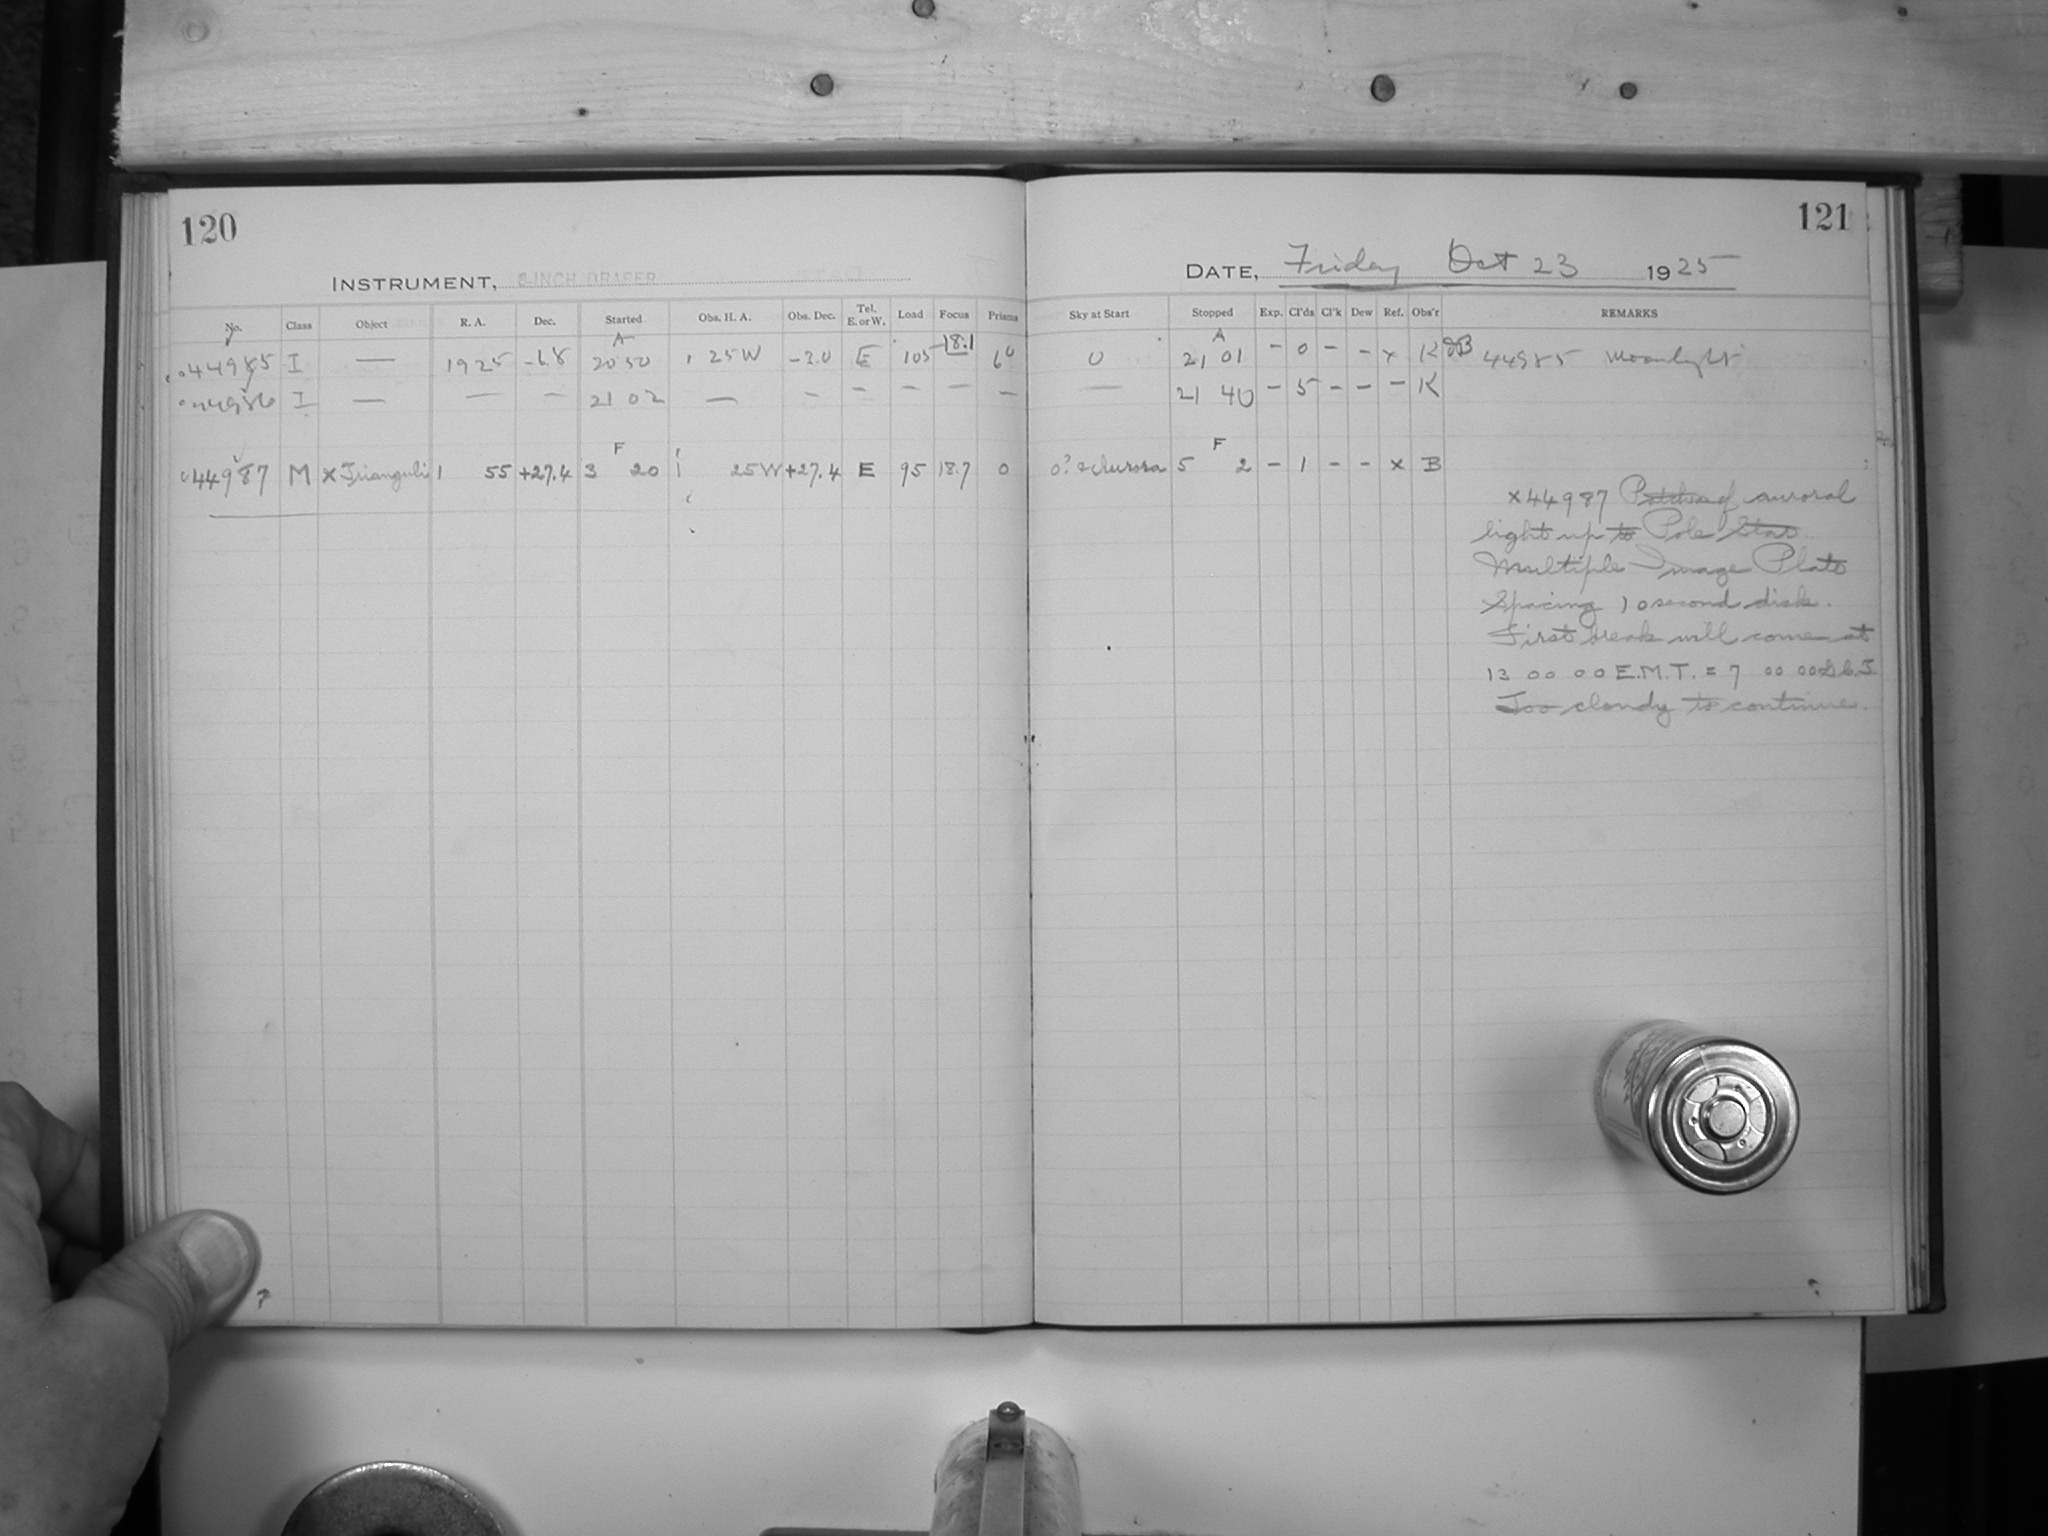 120
INSTRUMENT, 8 INCH DRAPER
No. Class Object R. A. Dec. Started Obs. H. A. Obs. Dec. Tel. E. or W. Load Focus Prisms
A 18.1
44985 I — 19 25 -6.8 20 50 25W -3.0 E 105
44986 I — — — 21 02 — — — — — —
F
44987 M X Trianguli 1 55 +27.4 3 20 1 25W +27.4 E 95 18.7 0
121
DATE, Friday Oct 23 1925
Sky at Start Stopped Exp. Cl'ds Cl'k Dew Ref. Obs'r REMARKS
A
0 21 01 – 0 – – x K 44985 Moonlight
— 21 40 – 5 – – – K
F
0? & Aurora 5 2 – 1 – – x B
x 44987 Patches of auroral
light up to Pole Star
Multiple Image Plate
Spacing 10 second disk.
First break will come at
13 00 00 E.M.T. = 7 00 00
Too cloudy to continue.